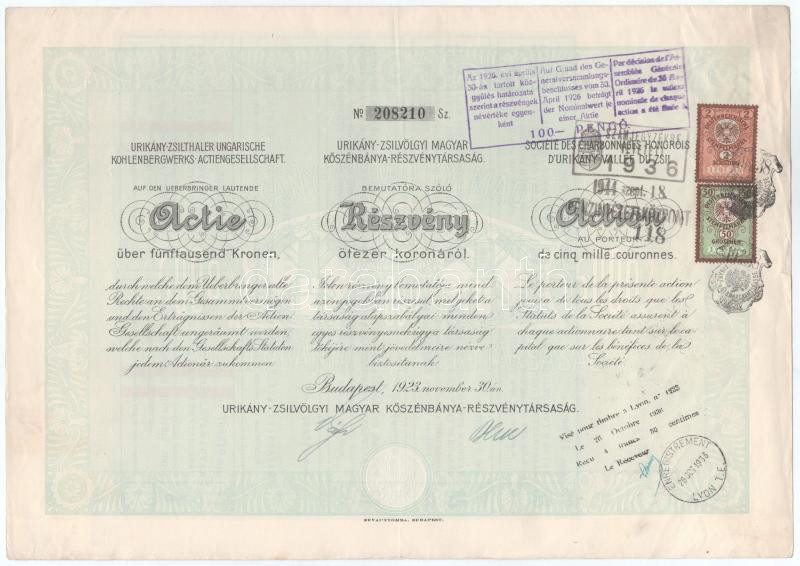 Az 1926. évi április
30-án tartott köz-
gyűlés határozata
szerint a részvények
névértéke egyen-
ként
Auf Grund des Ge-
neralversammlungs-
beschlusses vom 30.
April 1926 beträgt
der Nominalwert je
einer Aktie
Par décision de l'As-
semblée Générale
Ordinaire du 30 Av-
ril 1926 la valeur
nominale de chaque
action a été fixée à
100— PENGŐ
№ 208210 Sz.
1936
1944 SZEPT. 18.
118
2
2
SCHILLING
50
50
GROSCHEN
URIKÁNY-ZSILTHALER UNGARISCHE
KOHLENBERGWERKS-ACTIENGESELLSCHAFT.
AUF DEN UEBERBRINGER LAUTENDE
Actie
über fünftausend Kronen,
durch welche dem Ueberbringer alle
Rechte an dem Gesammtvermögen
und den Erträgnissen der Actien-
Gesellschaft eingeräumt werden,
welche nach den Gesellschafts-Statuten
jedem Actionär zukommen.
URIKÁNY-ZSILVÖLGYI MAGYAR
KŐSZÉNBÁNYA-RÉSZVÉNYTÁRSASÁG.
BEMUTATÓRA SZÓLÓ
Részvény
ötezer koronáról.
Jelen részvény bemutatója mind-
azon jogokban részesül, melyeket a
társaság alapszabályai minden
egyes részvényesnek úgy a társaság
tőkéjére mint jövedelmeire nézve
biztosítanak.
SOCIÉTÉ DES CHARBONNAGES HONGROIS
D'URIKÁNY-VALLÉE DU ZSIL.
Action
AU PORTEUR
de cinq mille couronnes.
Le porteur de la présente action
jouira de tous les droits que les
Statuts de la Société assurent à
chaque actionnaire tant sur le ca-
pital que sur les bénéfices de la
Société.
Budapest, 1923. november 30-án.
URIKÁNY-ZSILVÖLGYI MAGYAR KŐSZÉNBÁNYA-RÉSZVÉNYTÁRSASÁG.
Visé pour timbre à Lyon, n°
Le 26 Octobre
Reçu 4 francs 50 centimes
Le Receveur
ENREGISTREMENT
LYON T.E.
RÉVAI-NYOMDA, BUDAPEST.